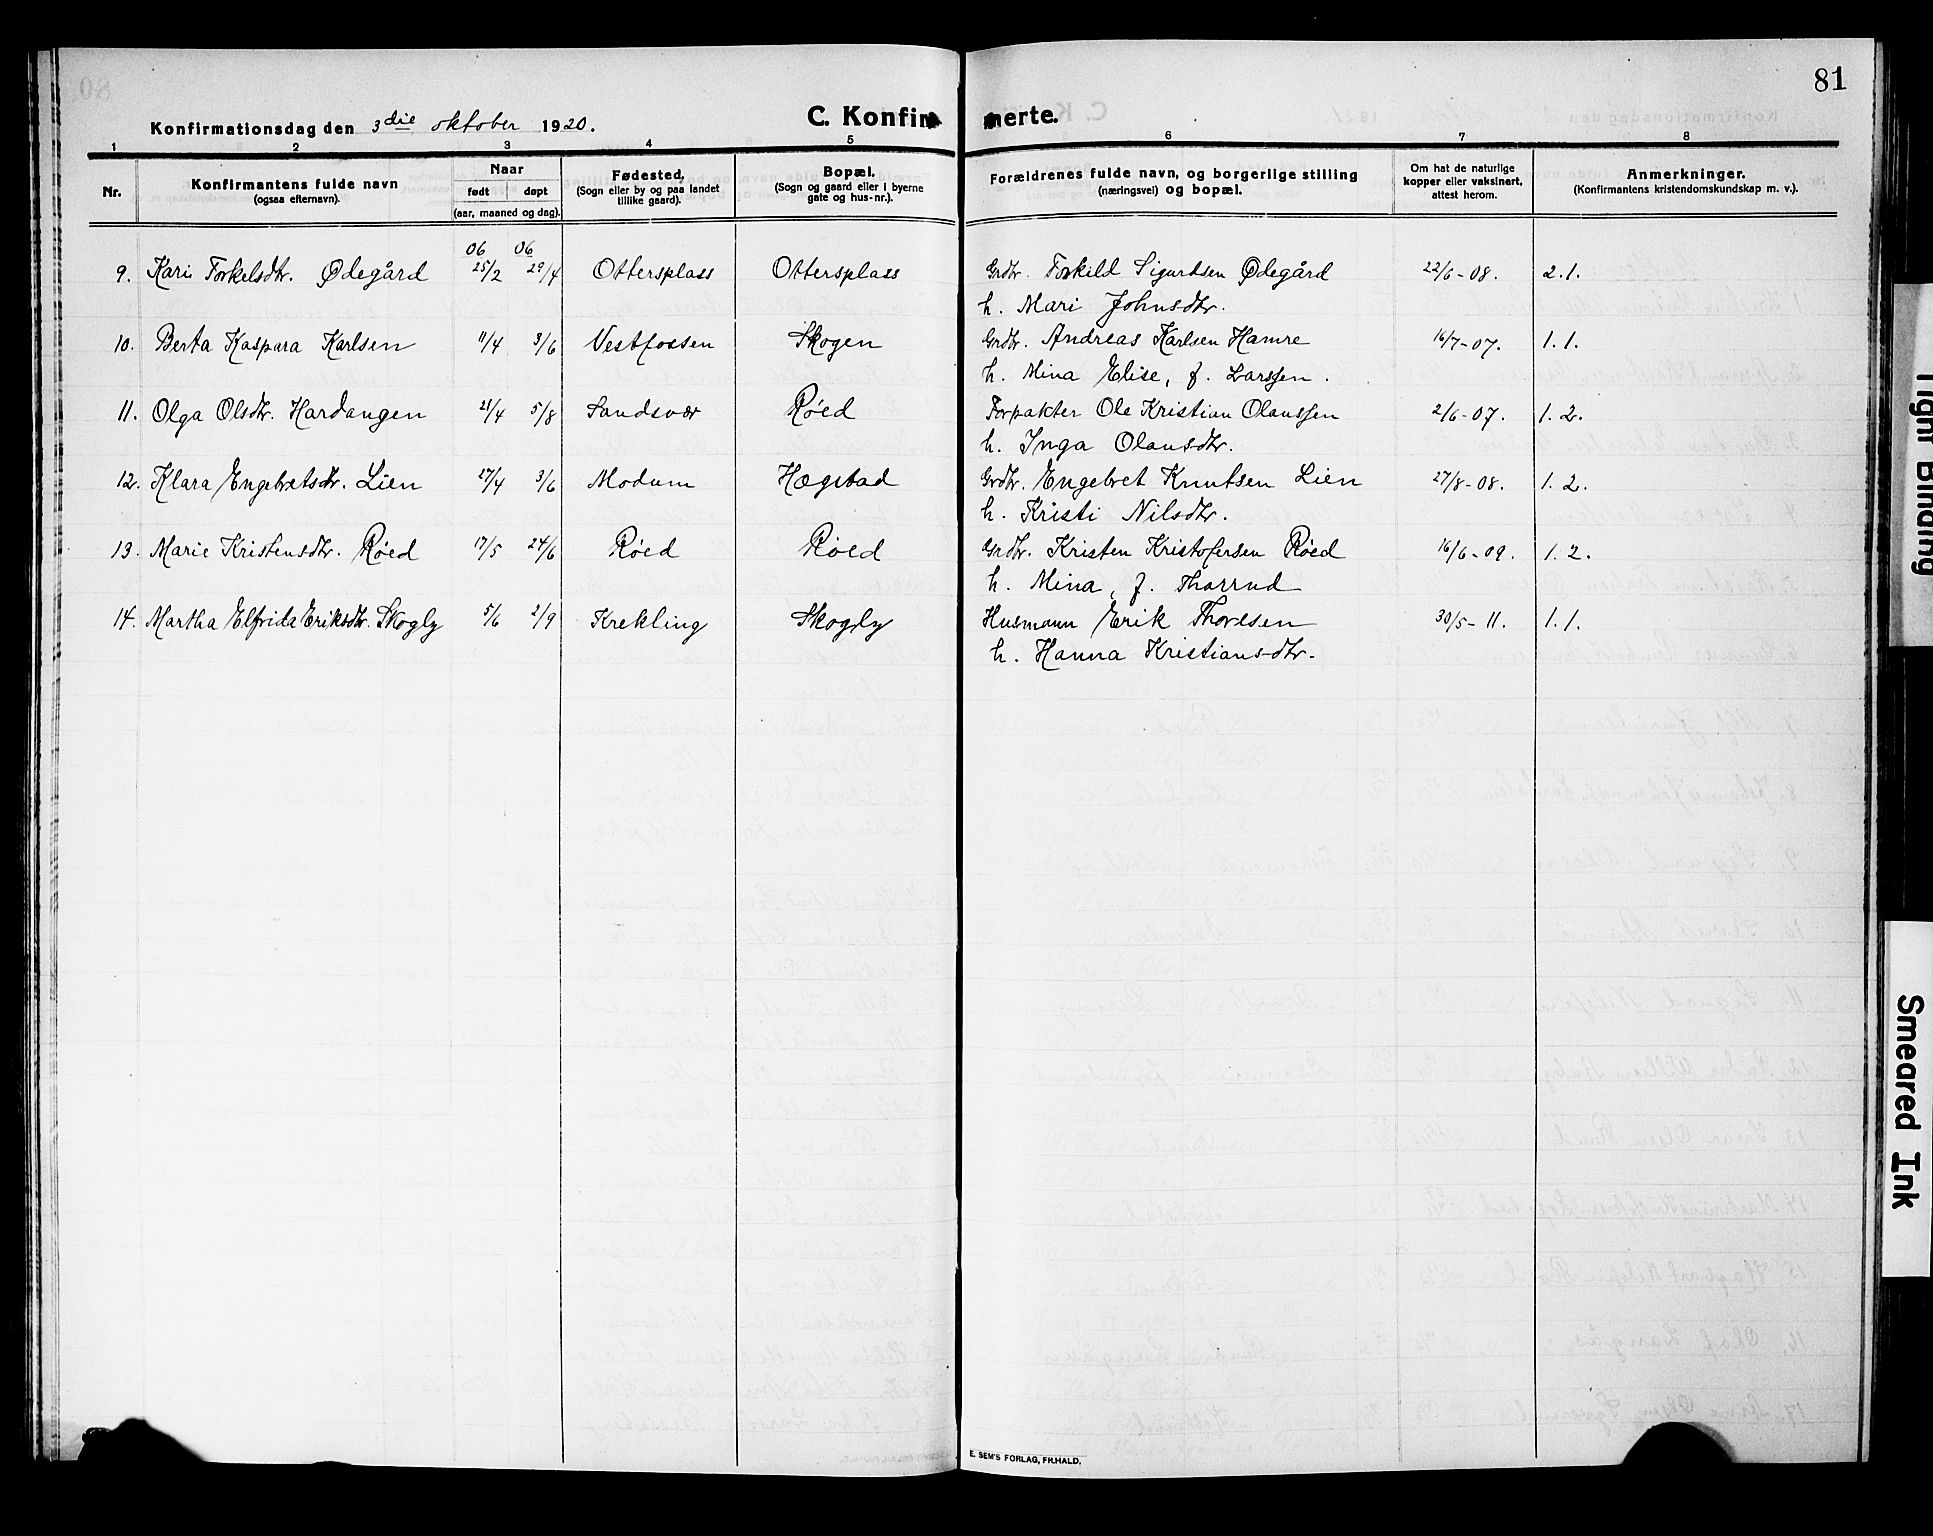 81
Konfirmationsdag den 3die oktober 1920.
C. Konfirmerte.
1 2 3 4 5 6 7 8
Nr.
Konfirmantens fulde navn
(ogsaa efternavn).
Naar
født døpt
(aar, maaned og dag).
Fødested,
(Sogn eller by og paa landet
tillike gaard).
Bopæl.
(Sogn og gaard eller i byerne
gate og hus-nr.).
Forældrenes fulde navn, og borgerlige stilling
(næringsvei) og bopæl.
Om hat de naturlige
kopper eller vaksinert,
attest herom.
Anmerkninger.
(Konfirmantens kristendomskundskap m. v.).
06 06
9. Kari Torkelsdtr. Ødegård 25/2 29/4 Ottersplass Ottersplass Grdbr. Torkild Sigurdsen Ødegård 22/6-08. 2.1.
h. Mari Johnsdtr.
10. Berta Kaspara Karlsen 11/4 3/6 Vestfossen Skogen Grdbr. Andreas Karlsen Hamre 16/7-07. 1.1.
h. Mina Elise, f. Larssen.
11. Olga Olsdtr. Hardangen 21/4 5/8 Sandsvær Røed Forpakter Ole Kristian Olaussen 2/6-07. 1.2.
h. Inga Olausdtr.
12. Klara Engebretsdtr. Lien 27/4 3/6 Modum Hægstad Grdbr. Engebret Knutsen Lien 27/8-08. 1.2.
h. Kristi Nilsdtr.
13. Marie Kristensdtr. Røed 17/5 24/6 Røed Røed Grdbr. Kristen Kristofersen Røed 16/6-09. 1.2.
h. Mina, f. Thorrud
14. Martha Elfrida Eriksdtr. Skogly 5/6 2/9 Krekling Skogly Husmann Erik Thoresen 30/5-11. 1.1.
h. Hanna Kristiansdtr.
E. SEM'S FORLAG, FR.HALD.
Tight Binding
Smeared Ink